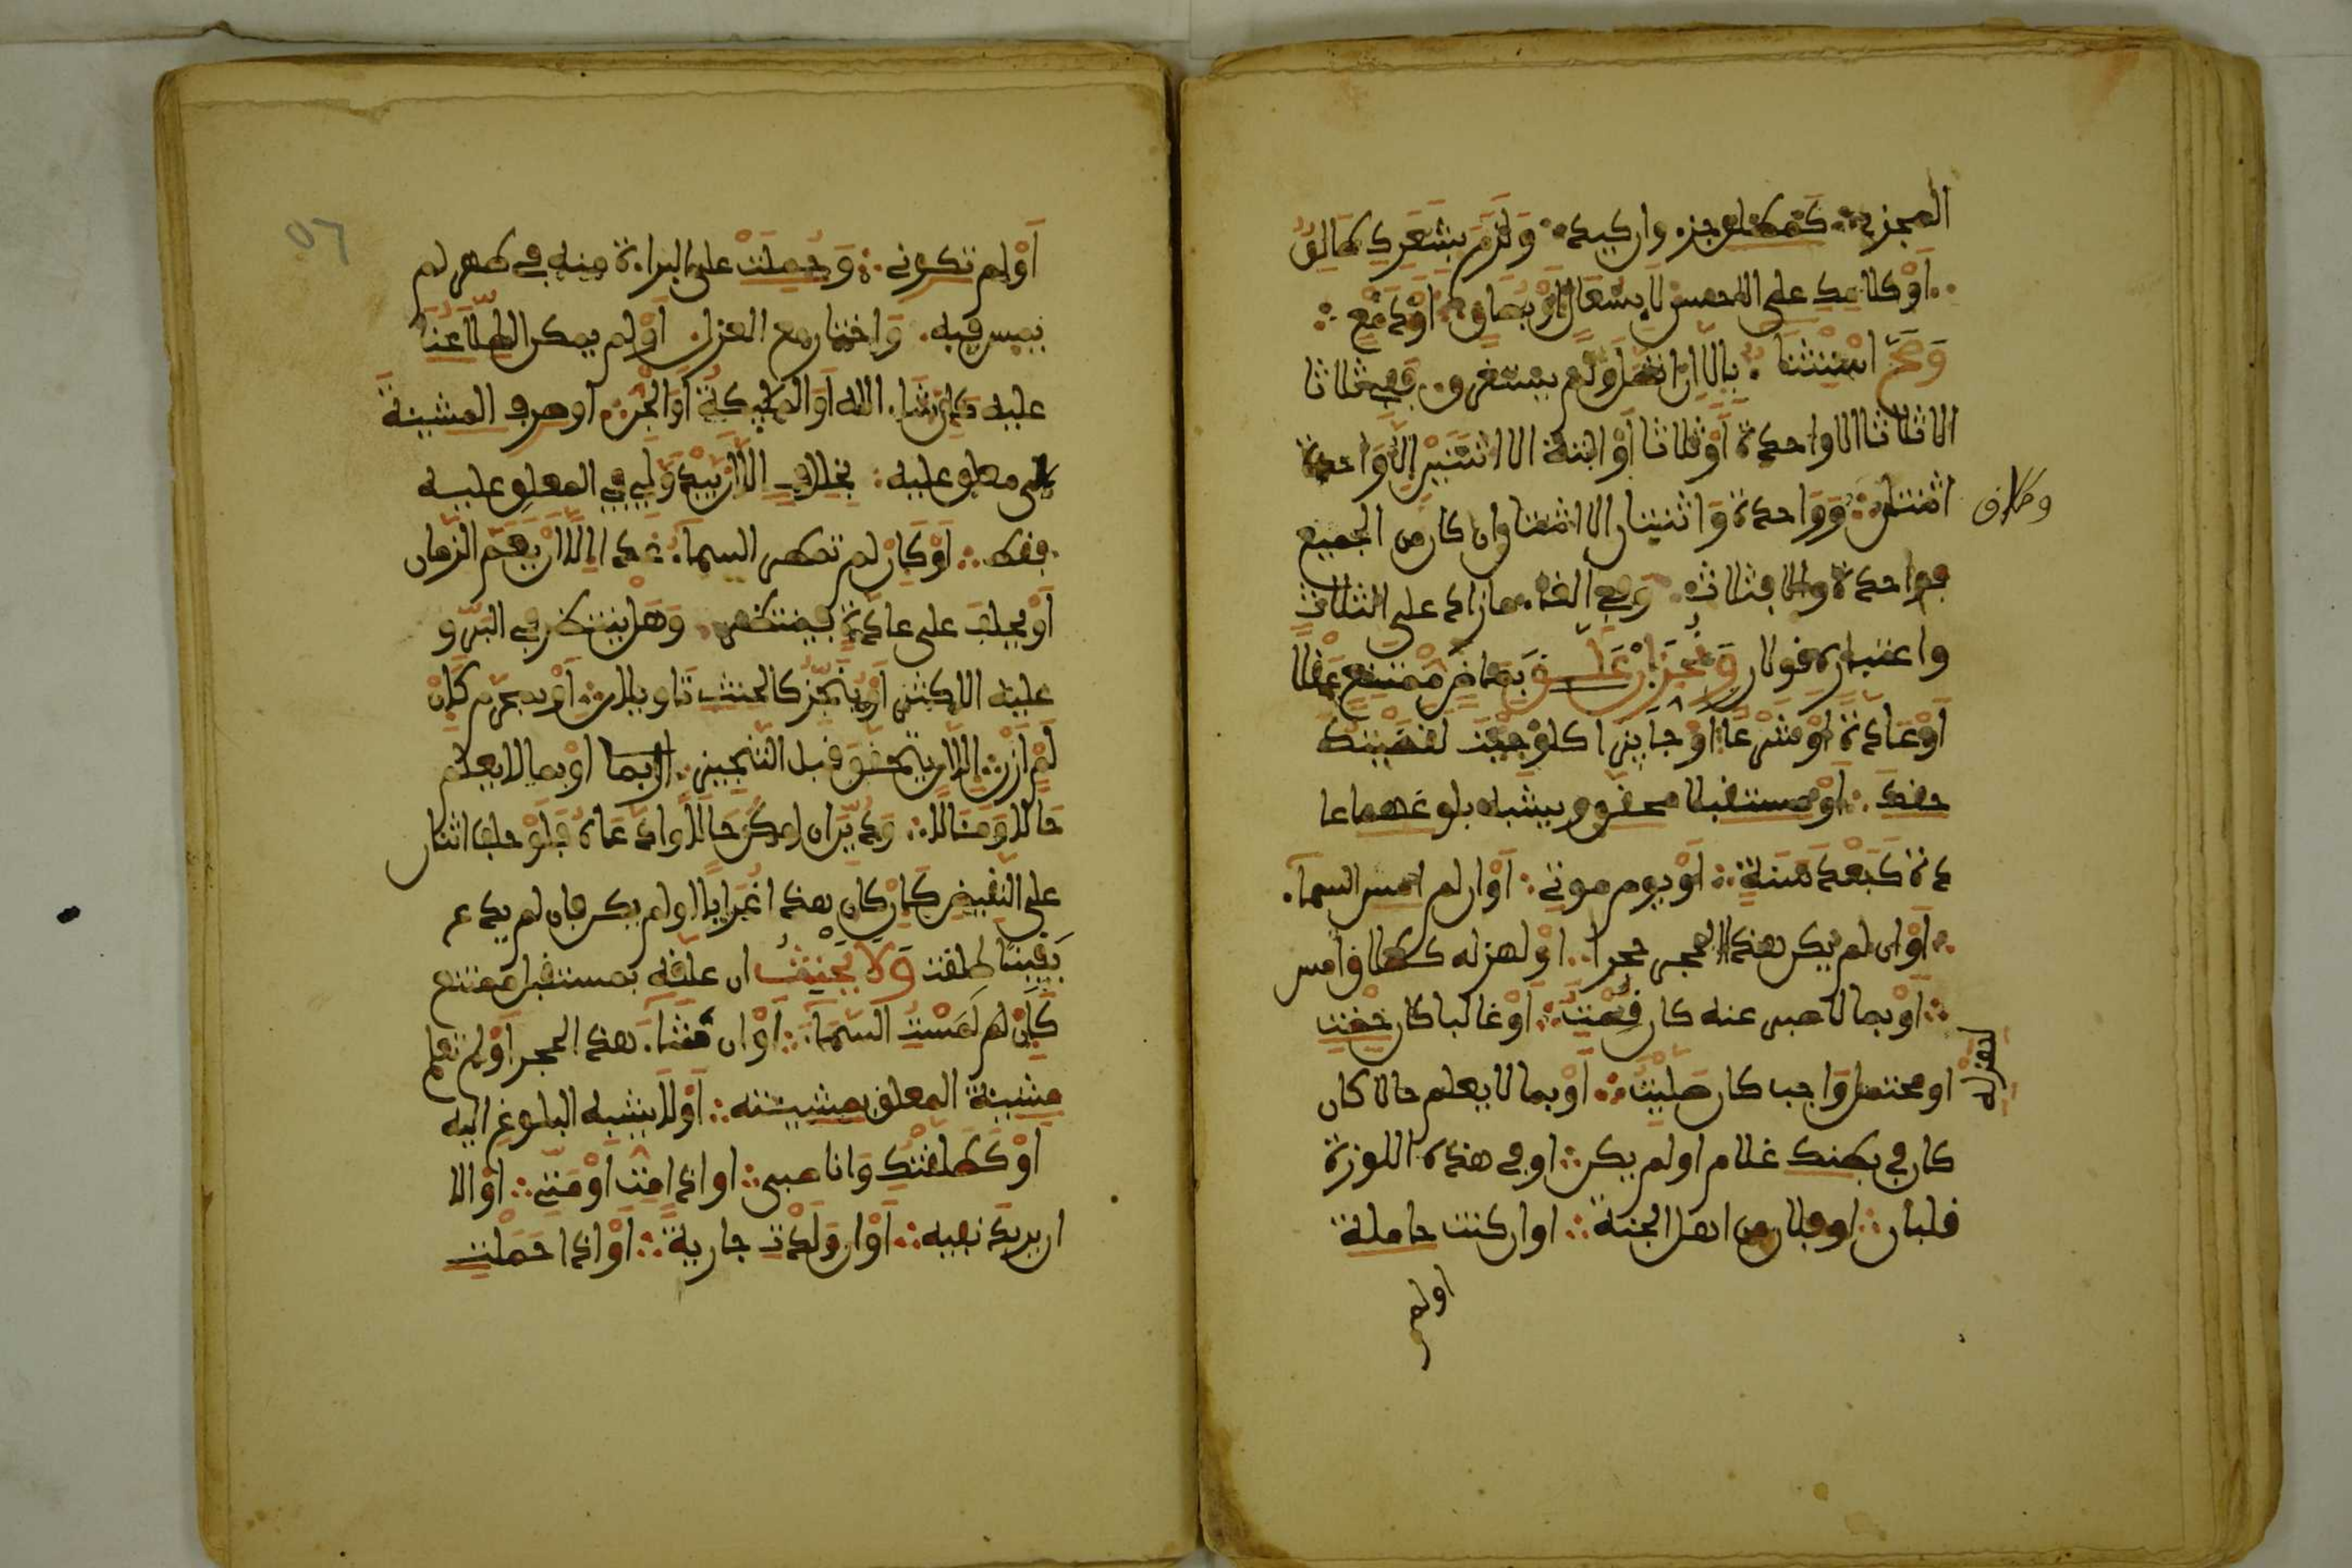 المجزىء كمطلق جزء وان كيد ولزم بشعرك طالق
او كلامك على الاحسن لا بسعال او بصاق او دمع
وصح استثناء بالا ان اتصل ولم يستغرق ففي ثلاثا
الا ثلاثا الا واحدة او ثلاثا او البتة الا اثنتين الا واحدة
اثنتان وواحدة واثنتان الا اثنتان ان كان من الجميع
فواحدة والا فثلاث وفي الغاء ما زاد على الثلاث
واعتباره قولان ونجز ان علق بماض ممتنع عقلا
او عادة او شرعا او جايز كلو جيت لقضيتك
حقك او مستقبل محقق ويشبه بلوغهما عا
دة كبعد سنة او يوم موتي او ان لم امس السماء
او ان لم يكن هذا الحجر حجرا او لهزله كطالق امس
او بما لا صبر عنه كان قمت او غالبا كان حضت
او محتمل واجب كان صليت او بما لا يعلم حالا كان
كان في بطنك غلام او لم يكن او في هذه اللوزة
قلبان او فلان من اهل الجنة او ان كنت حاملة
او لم
او لم تكوني وحملت على البراءة منه في طهر لم
يمس فيه واختار مع العزل او لم يمكن اطلاعنا
عليه كان شاء الله او المليكة او الجن او صرف المشيئة
على معلق عليه بخلاف الا ان يبدو لي في المعلق عليه
فقط او كان لم تمطر السماء غدا الا ان يعم الزمان
او يحلف على عادة فينتظر وهل ينتظر في البر و
عليه الاكثر او ينجز كالحنث تاويلان او بمحرم كان
لم ازن الا ان يتحقق قبل التنجيز او بما لا يعلم
حالا ومئالا ودين ان امكن حالا وادعاه فلو حلف اثنان
على النقيض كان كان هذا غرابا او لم يكن فان لم يدع
يقينا طلقت ولا يحنث ان علقه بمستقبل ممتنع
كان لمست السماء او ان شاء هذا الحجر او لم تعلم
مشيئة المعلق بمشيئته او لا يشبه البلوغ اليه
او كطلقتك وانا صبي او اذا مت او متي او الا
ان يريد نفيه او ان ولدت جارية او اذا حملت